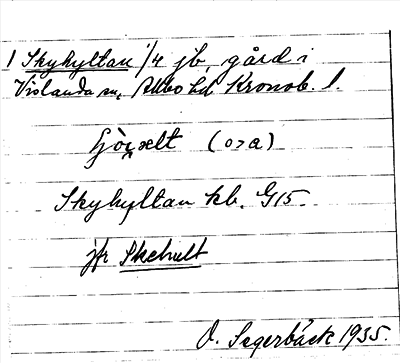 1 Skyhyltan 1/4 jb, gård i
Vislanda sn, Allbo hd Kronob. l.
(ora)
Skyhyltan kb. G15
jfr Skehult
O. Segerbäck 1935.